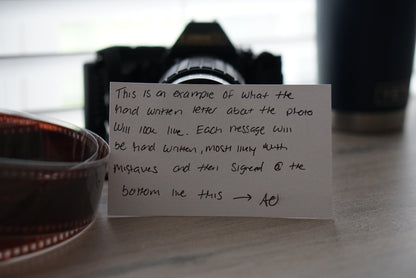 This is an example of what the
hand written letter about the photo
will look like. Each message will
be hand written, most likely with
mistakes and then signed @ the
bottom like this → AO